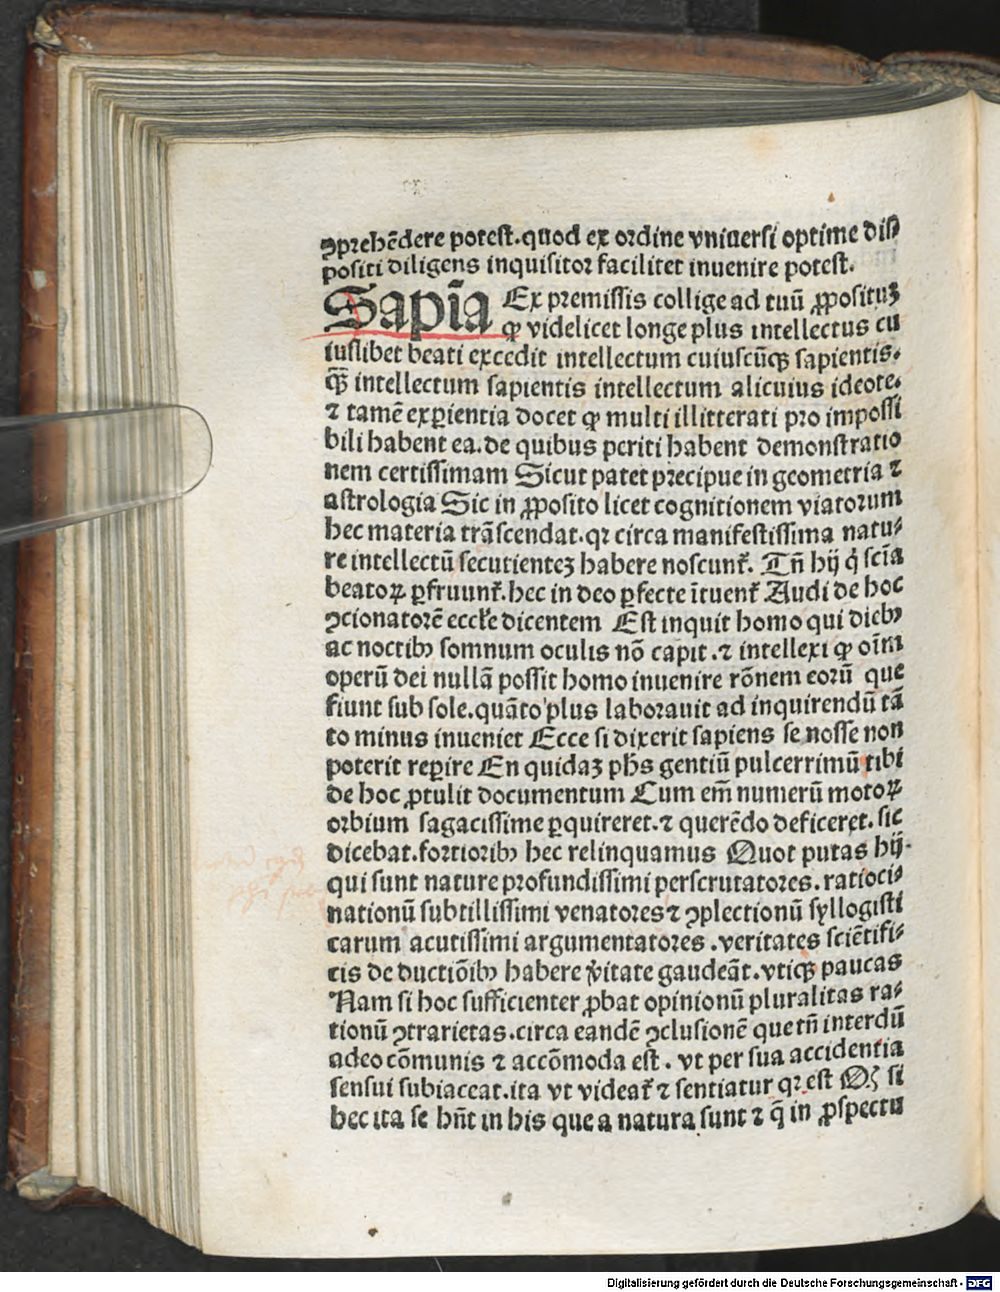 ꝯprehẽdere potest.quod ex ordine vniuersi optime dis
positi diligens inquisitor faciliter inuenire potest.
Sapĩa Ex premissis collige ad tuũ ꝓposituꝫ
ꝙ videlicet longe plus intellectus cu
iuslibet beati excedit intellectum cuiuscũqꝫ sapientis.
qꝫ̃ intellectum sapientis intellectum alicuius ideote.
⁊ tamẽ exꝑientia docet ꝙ multi illitterati pro impossi
bili habent ea.de quibus periti habent demonstratio
nem certissimam Sicut patet precipue in geometria ⁊
astrologia Sic in ꝓposito licet cognitionem viatorum
hec materia trãscendat.qꝛ circa manifestissima natu-
re intellectũ secutienteꝫ habere noscunt̃. Tñ hij q̇ scĩa
beatoꝝ ꝑfruunt̃.hec in deo ꝑfecte ĩtuent̃ Audi de hoc
ꝯcionatorẽ eccłe dicentem Est inquit homo qui diebꝰ
ac noctibꝰ somnum oculis nõ capit.⁊ intellexi ꝙ oĩm
operũ dei nullã possit homo inuenire rõnem eorũ que
fiunt sub sole.quãto plus laborauit ad inquirendũ tã
to minus inueniet Ecce si dixerit sapiens se nosse non
poterit reꝑire En quidaꝫ phs gentiũ pulcerrimũ tibi
de hoc ꝓtulit documentum Cum em̃ numerũ motoꝝ
orbium sagacissime ꝑquireret.⁊ querẽdo deficeret.sic
dicebat.fortioribꝰ hec relinquamus Quot putas hij.
qui sunt nature profundissimi perscrutatores.ratioci-
nationũ subtillissimi venatores ⁊ ꝯplectionũ syllogisti
carum acutissimi argumentatores.veritates sciẽtifi-
cis de ductiõibꝰ habere v̇itate gaudeãt.vtiqꝫ paucas
Nam si hoc sufficienter ꝓbat opinionũ pluralitas ra-
tionũ ꝯtrarietas.circa eandẽ ꝯclusionẽ que tñ interdũ
adeo cõmunis ⁊ accõmoda est. vt per sua accidentia
sensui subiaceat.ita vt videat̃ ⁊ sentiatur qꝛ est Qꝫ si
hec ita se hñt in his que a natura sunt ⁊ q̃ in ꝓspectu
Digitalisierung gefördert durch die Deutsche Forschungsgemeinschaft - DFG